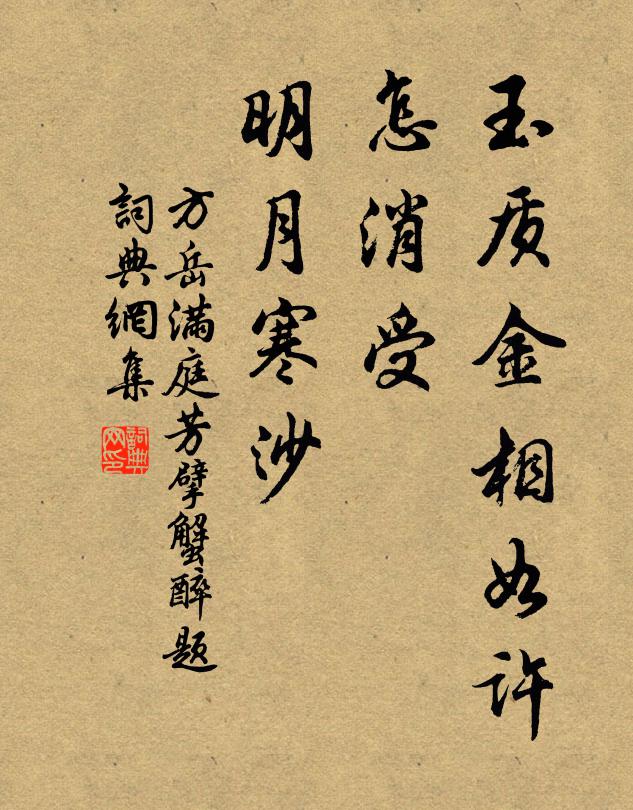 玉质金相如许
怎消受
明月寒沙
方岳满庭芳擘蟹醉题
詞典網集
詞典网印